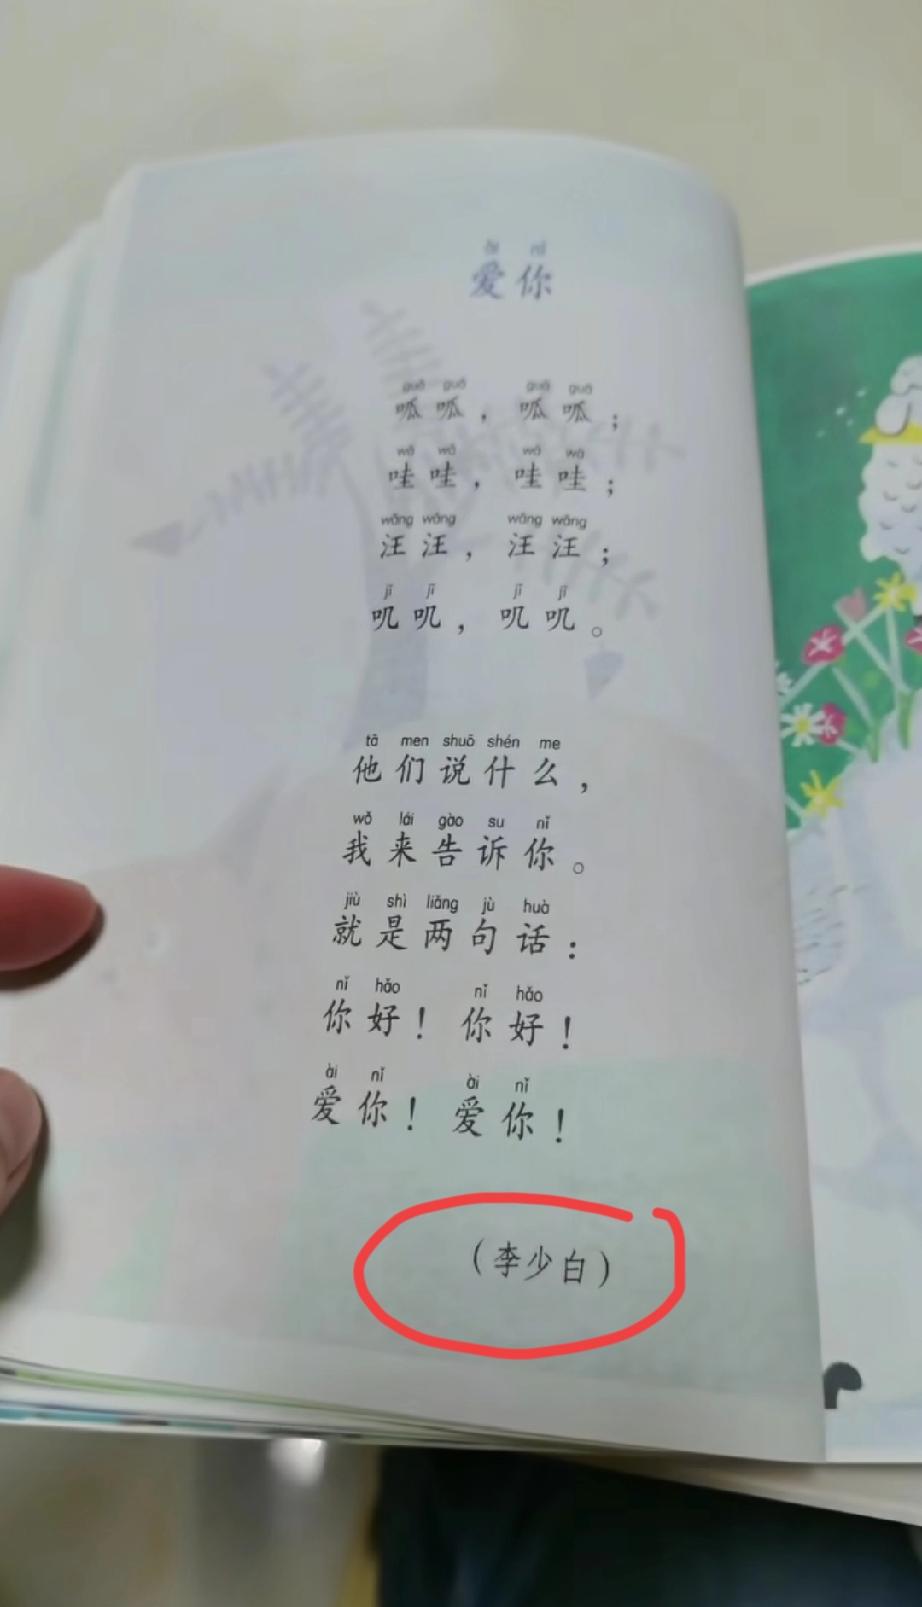 ài nǐ
爱你
guā guā guā guā
呱呱，呱呱；
wā wā wā wā
哇哇，哇哇；
wāng wāng wāng wāng
汪汪，汪汪；
jī jī jī jī
叽叽，叽叽。
tā men shuō shén me
他们说什么，
wǒ lái gào su nǐ
我来告诉你。
jiù shì liǎng jù huà
就是两句话：
nǐ hǎo nǐ hǎo
你好！你好！
ài nǐ ài nǐ
爱你！爱你！
（李少白）